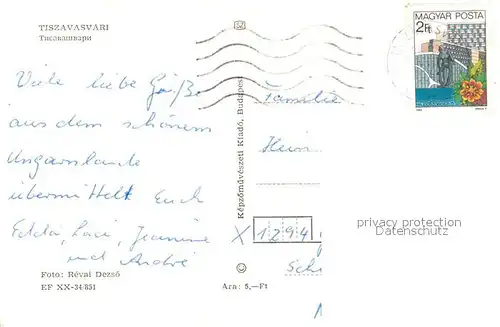 TISZAVASVÁRI
Тисавашвари
Viele liebe Grüße
aus dem schönem
Ungarnlande
übermittelt Euch
Edda, Laci, Jeannine
und André
Foto: Révai Dezső
EF XX-34/851
Képzőművészeti Kiadó, Budapest
MAGYAR POSTA
2 Ft
Familie
Hein
X 1294
Sch
Ára: 5,—Ft
privacy protection
Datenschutz